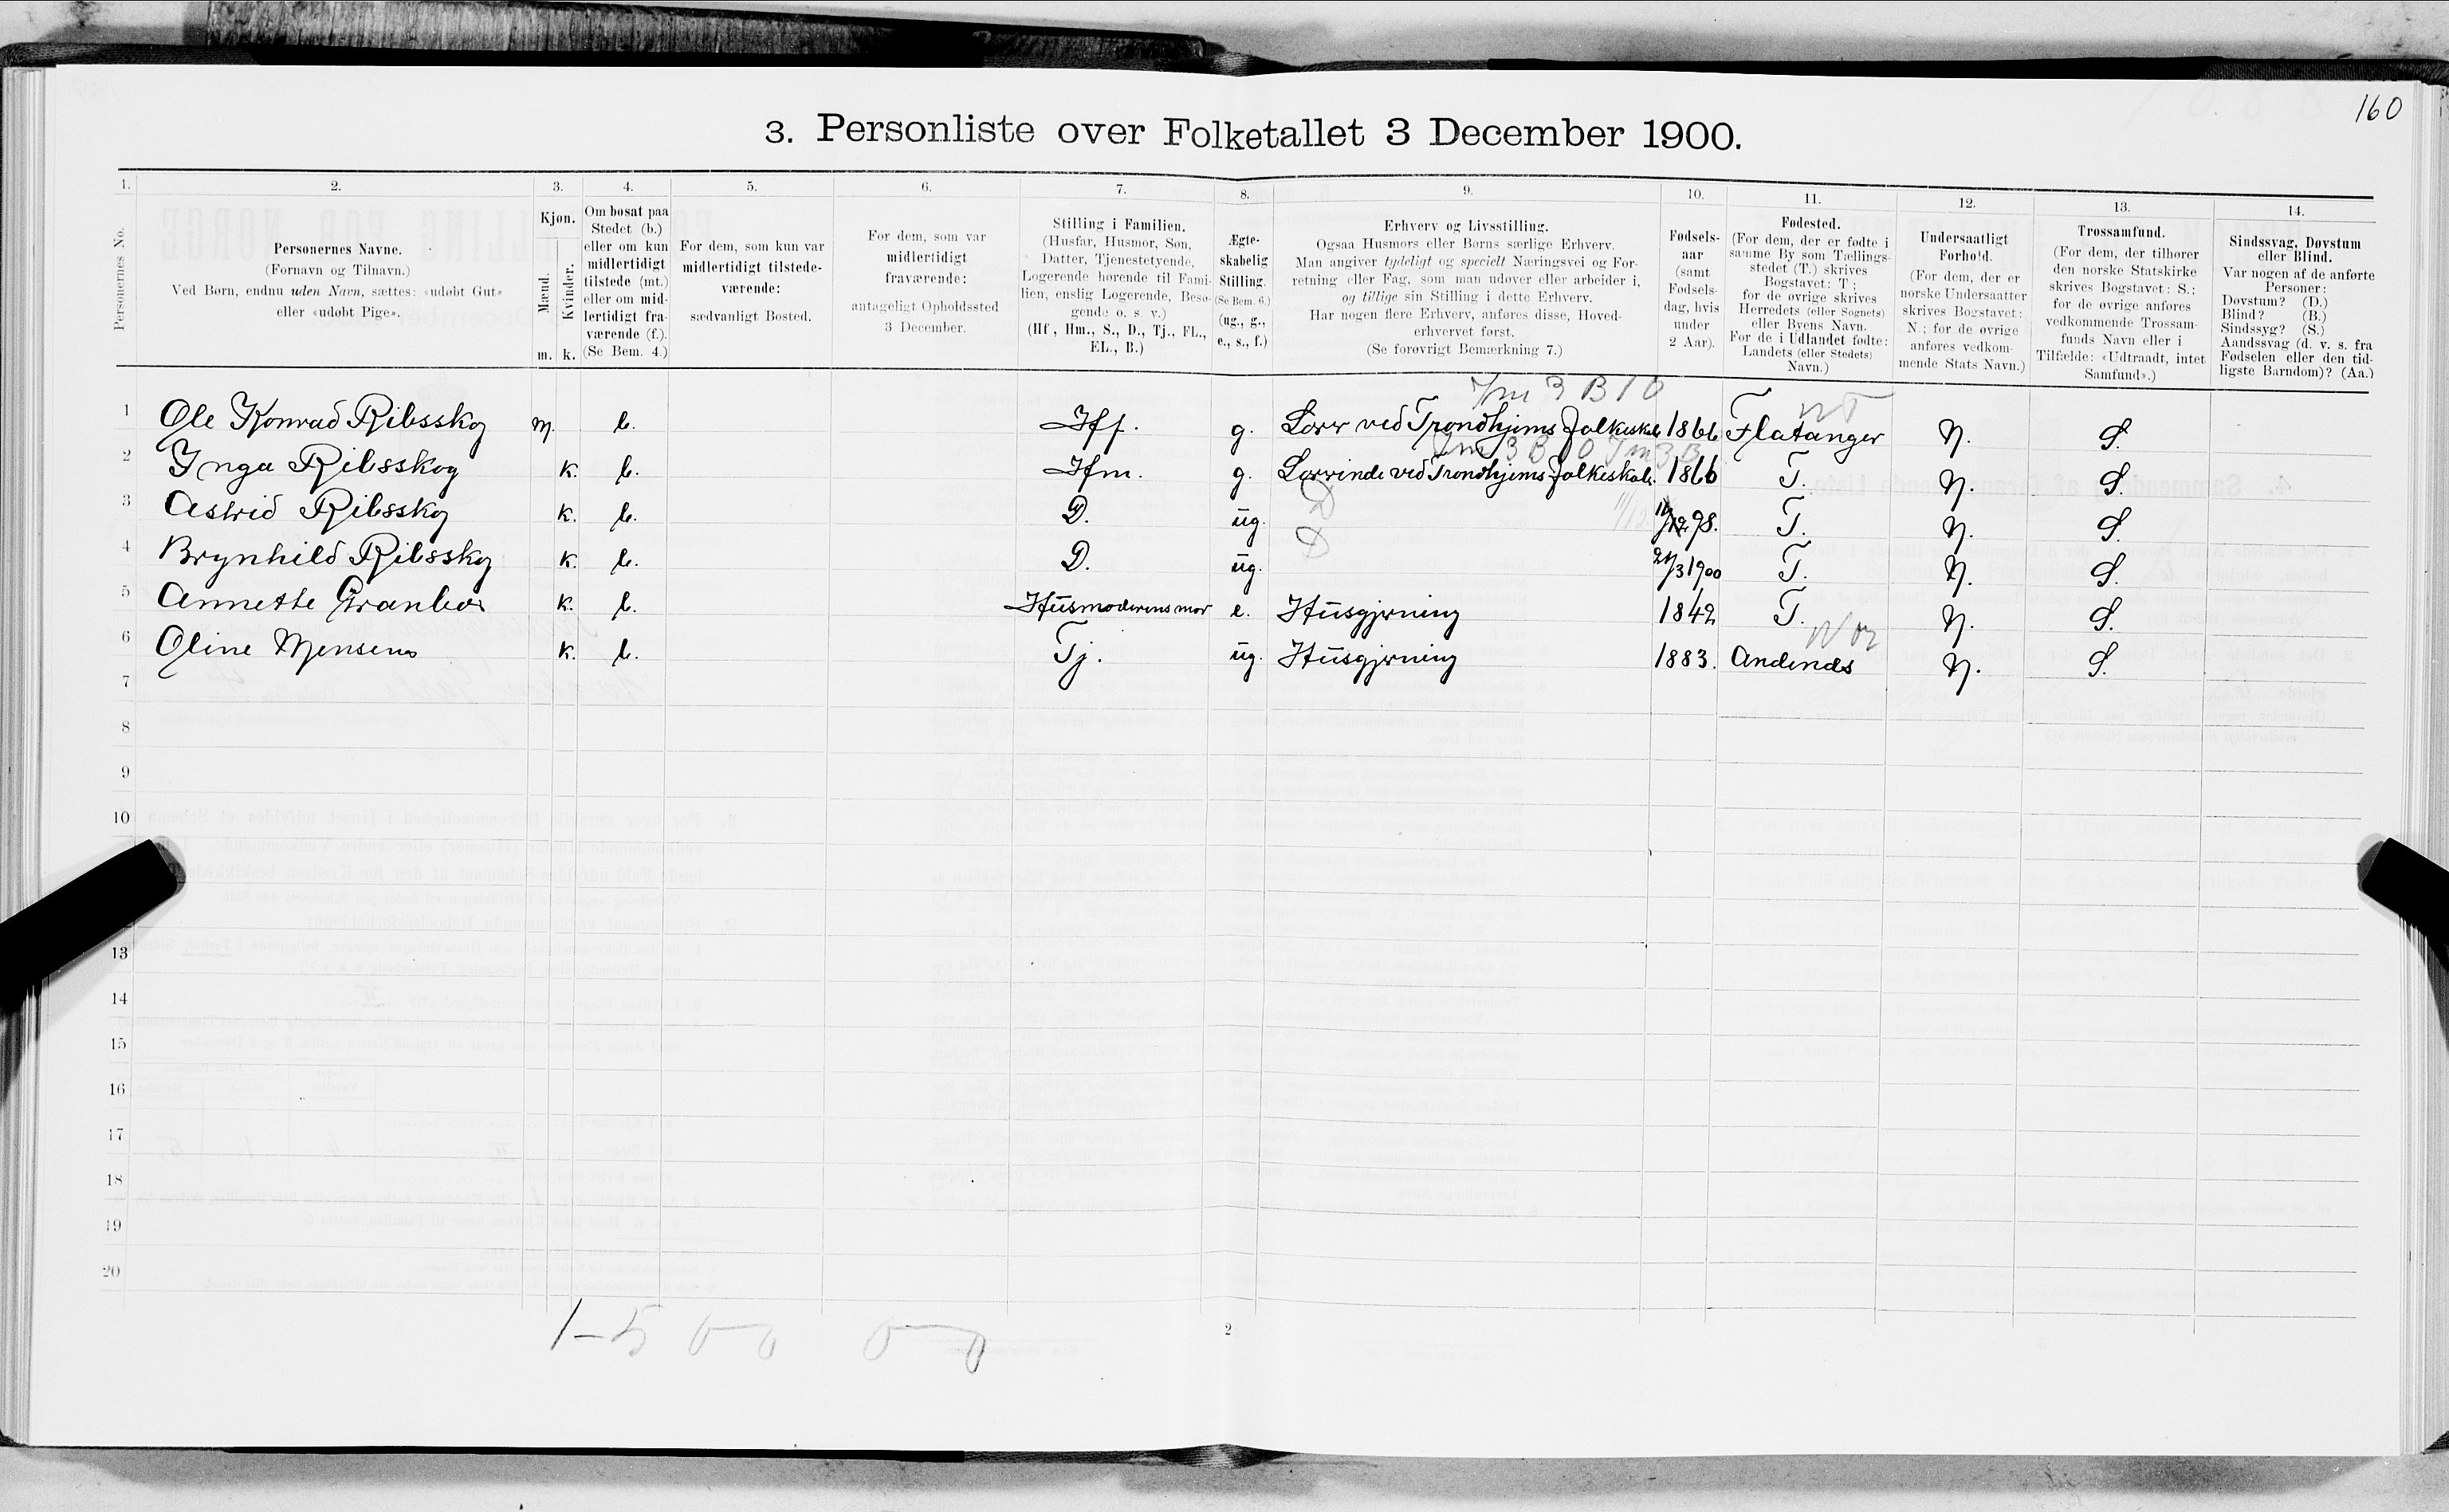 160
3. Personliste over Folketallet 3 December 1900.
1. 2. 3. 4. 5. 6. 7. 8. 9. 10. 11. 12. 13. 14.
Personernes No.
Personernes Navne.
(Fornavn og Tilnavn.)
Ved Børn, endnu uden Navn, sættes: «udøbt Gut»
eller «udøbt Pige».
Kjøn.
Mænd.
Kvinder.
m. k.
Om bosat paa
Stedet (b.)
eller om kun
midlertidigt
tilstede (mt.)
eller om mid-
lertidigt fra-
værende (f.).
(Se Bem. 4.)
For dem, som kun var
midlertidigt tilstede-
værende:
sædvanligt Bosted.
For dem, som var
midlertidigt
fraværende:
antageligt Opholdssted
3 December.
Stilling i Familien.
(Husfar, Husmor, Søn,
Datter, Tjenestetyende,
Logerende hørende til Fami-
lien, enslig Logerende, Besø-
gende o. s. v.)
(Hf., Hm., S., D., Tj., FL.,
EL., B.)
Ægte-
skabelig
Stilling.
(Se Bem. 6.)
(ug., g.,
e., s., f.)
Erhverv og Livsstilling.
Ogsaa Husmors eller Børns særlige Erhverv.
Man angiver tydeligt og specielt Næringsvei og For-
retning eller Fag, som man udøver eller arbeider i,
og tillige sin Stilling i dette Erhverv.
Har nogen flere Erhverv, anføres disse, Hoved-
erhvervet først.
(Se forøvrigt Bemærkning 7.)
Fødsels-
aar
(samt
Fødsels-
dag, hvis
under
2 Aar).
Fødested.
(For dem, der er fødte i
samme By som Tællings-
stedet (T.) skrives
Bogstavet: T.;
for de øvrige skrives
Herredets (eller Sognets)
eller Byens Navn.
For de i Udlandet fødte:
Landets (eller Stedets)
Navn.)
Undersaatligt
Forhold.
(For dem, der er
norske Undersaatter
skrives Bogstavet:
N.; for de øvrige
anføres vedkom-
mende Stats Navn.)
Trossamfund.
(For dem, der tilhører
den norske Statskirke
skrives Bogstavet: S.;
for de øvrige anføres
vedkommende Trossam-
funds Navn eller i
Tilfælde: «Udtraadt, intet
Samfund».)
Sindssvag, Døvstum
eller Blind.
Var nogen af de anførte
Personer:
Døvstum? (D.)
Blind? (B.)
Sindssyg? (S.)
Aandssvag (d. v. s. fra
Fødselen eller den tid-
ligste Barndom)? (Aa.)
1 Ole Konrad Ribsskog m. b. Hf. g. Lærer ved Trondhjems Folkeskole 1866 Flatanger N. S.
2 Inga Ribsskog k. b. Hm. g. Lærerinde ved Trondhjems Folkeskole. 1866 T. N. S.
3 Astrid Ribsskog k. b. D. ug. 98. T. N. S.
4 Brynhild Ribsskog k. b. D. ug. 24/3 1900 T. N. S.
5 Annette Granbo k. b. Husmoderens mor e. Husgjerning 1842 T. N. S.
6 Oline Monsen k. b. Tj. ug. Husgjerning 1883. Andenes N. S.
7
8
9
10
13
14
15
16
17
18
19
20
1-5 0-0 0-0
2